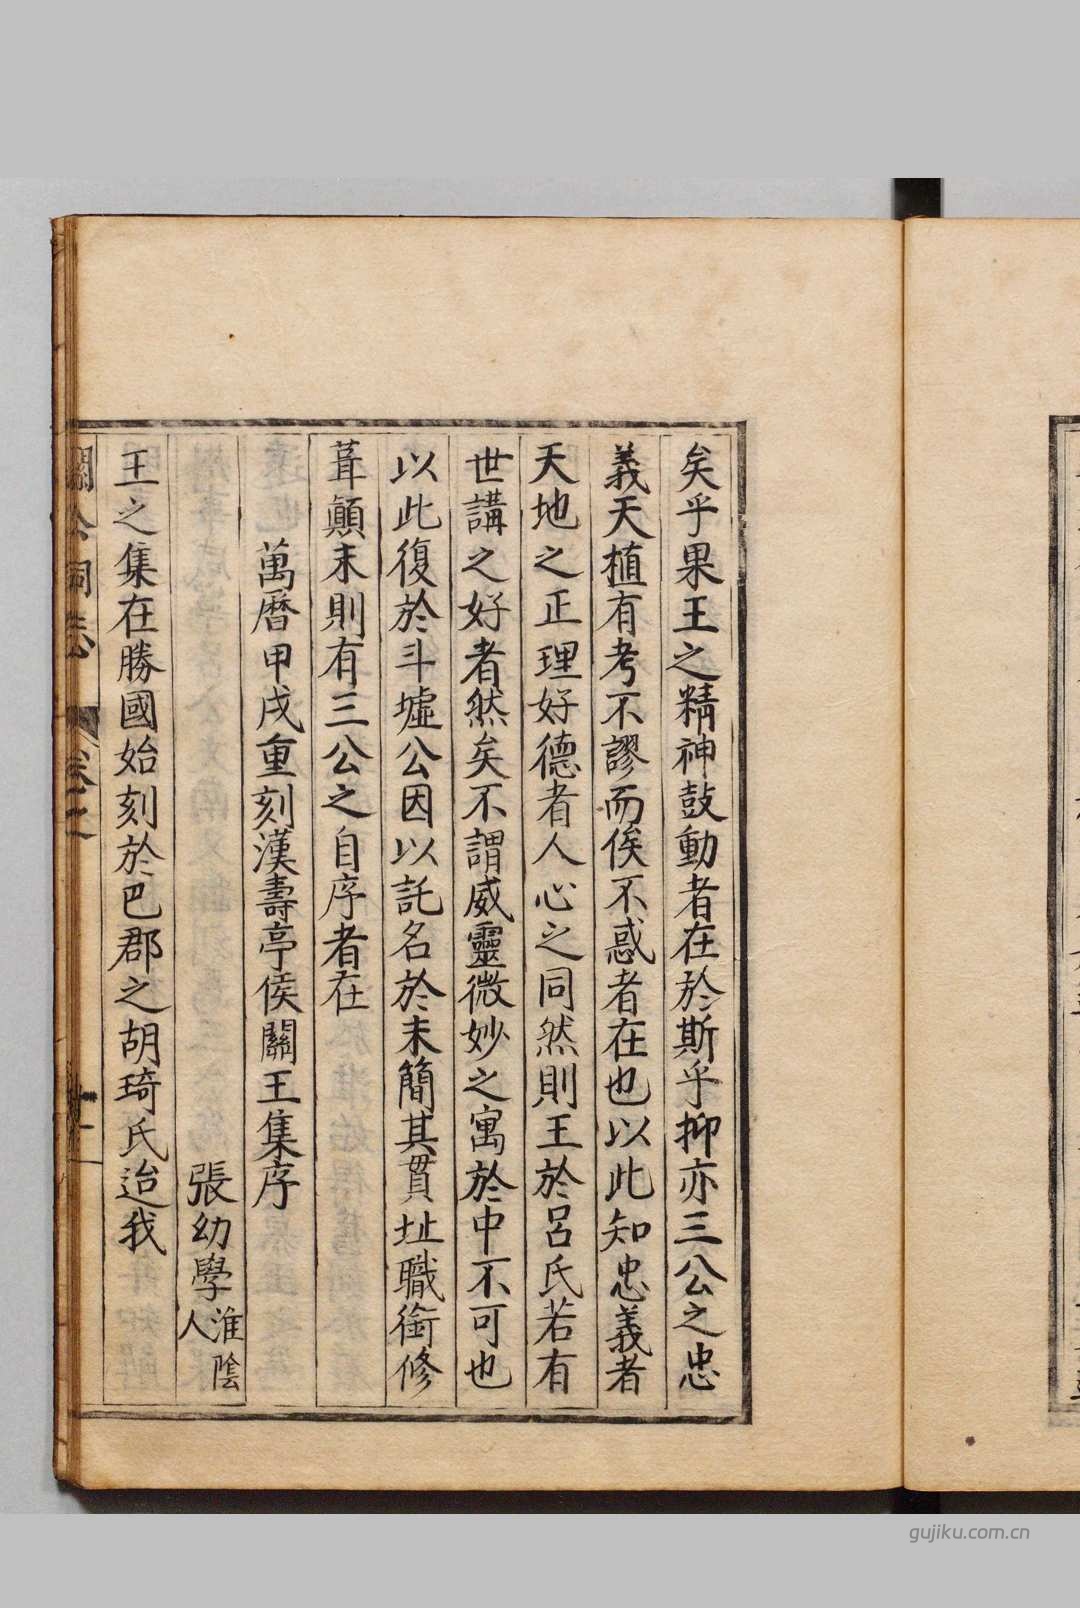 矣乎果王之精神鼓動者在於斯乎抑亦三公之忠
義天植有考不謬而俟不惑者在也以此知忠義者
天地之正理好德者人心之同然則王於呂氏若有
世講之好者然矣不謂威靈微妙之寓於中不可也
以此復於斗墟公因以託名於末簡其貫址職銜修
葺顛末則有三公之自序者在
萬曆甲戌重刻漢壽亭侯關王集序
張幼學淮陰人
王之集在勝國始刻於巴郡之胡琦氏迨我
關公祠志
卷之
gujiku.com.cn